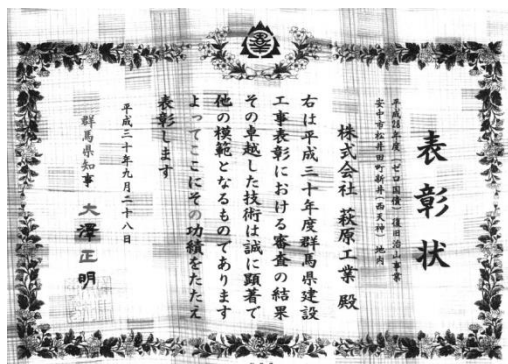 表彰状
平成28年度 (ゼロ国債) 復旧治山事業
安中市松井田町新井 (西天神) 地内
株式会社 萩原工業 殿
右は平成三十年度群馬県建設
工事表彰における審査の結果
その卓越した技術は誠に顕著で
他の模範となるものであります
よってここにその功績をたたえ
表彰します
平成三十年九月二十八日
群馬県知事 大澤正明